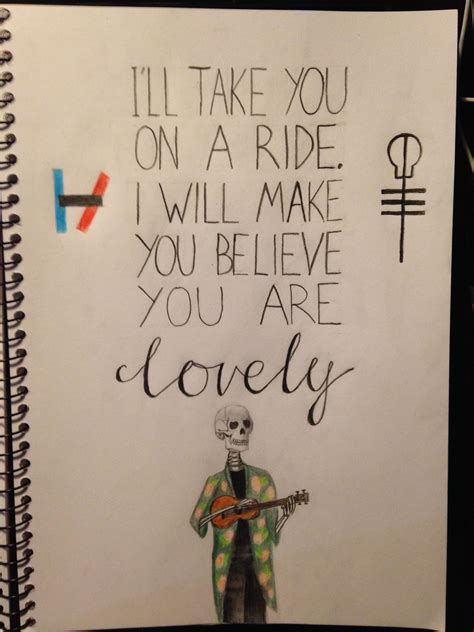 I'LL TAKE YOU
ON A RIDE.
I WILL MAKE
YOU BELIEVE
YOU ARE
lovely